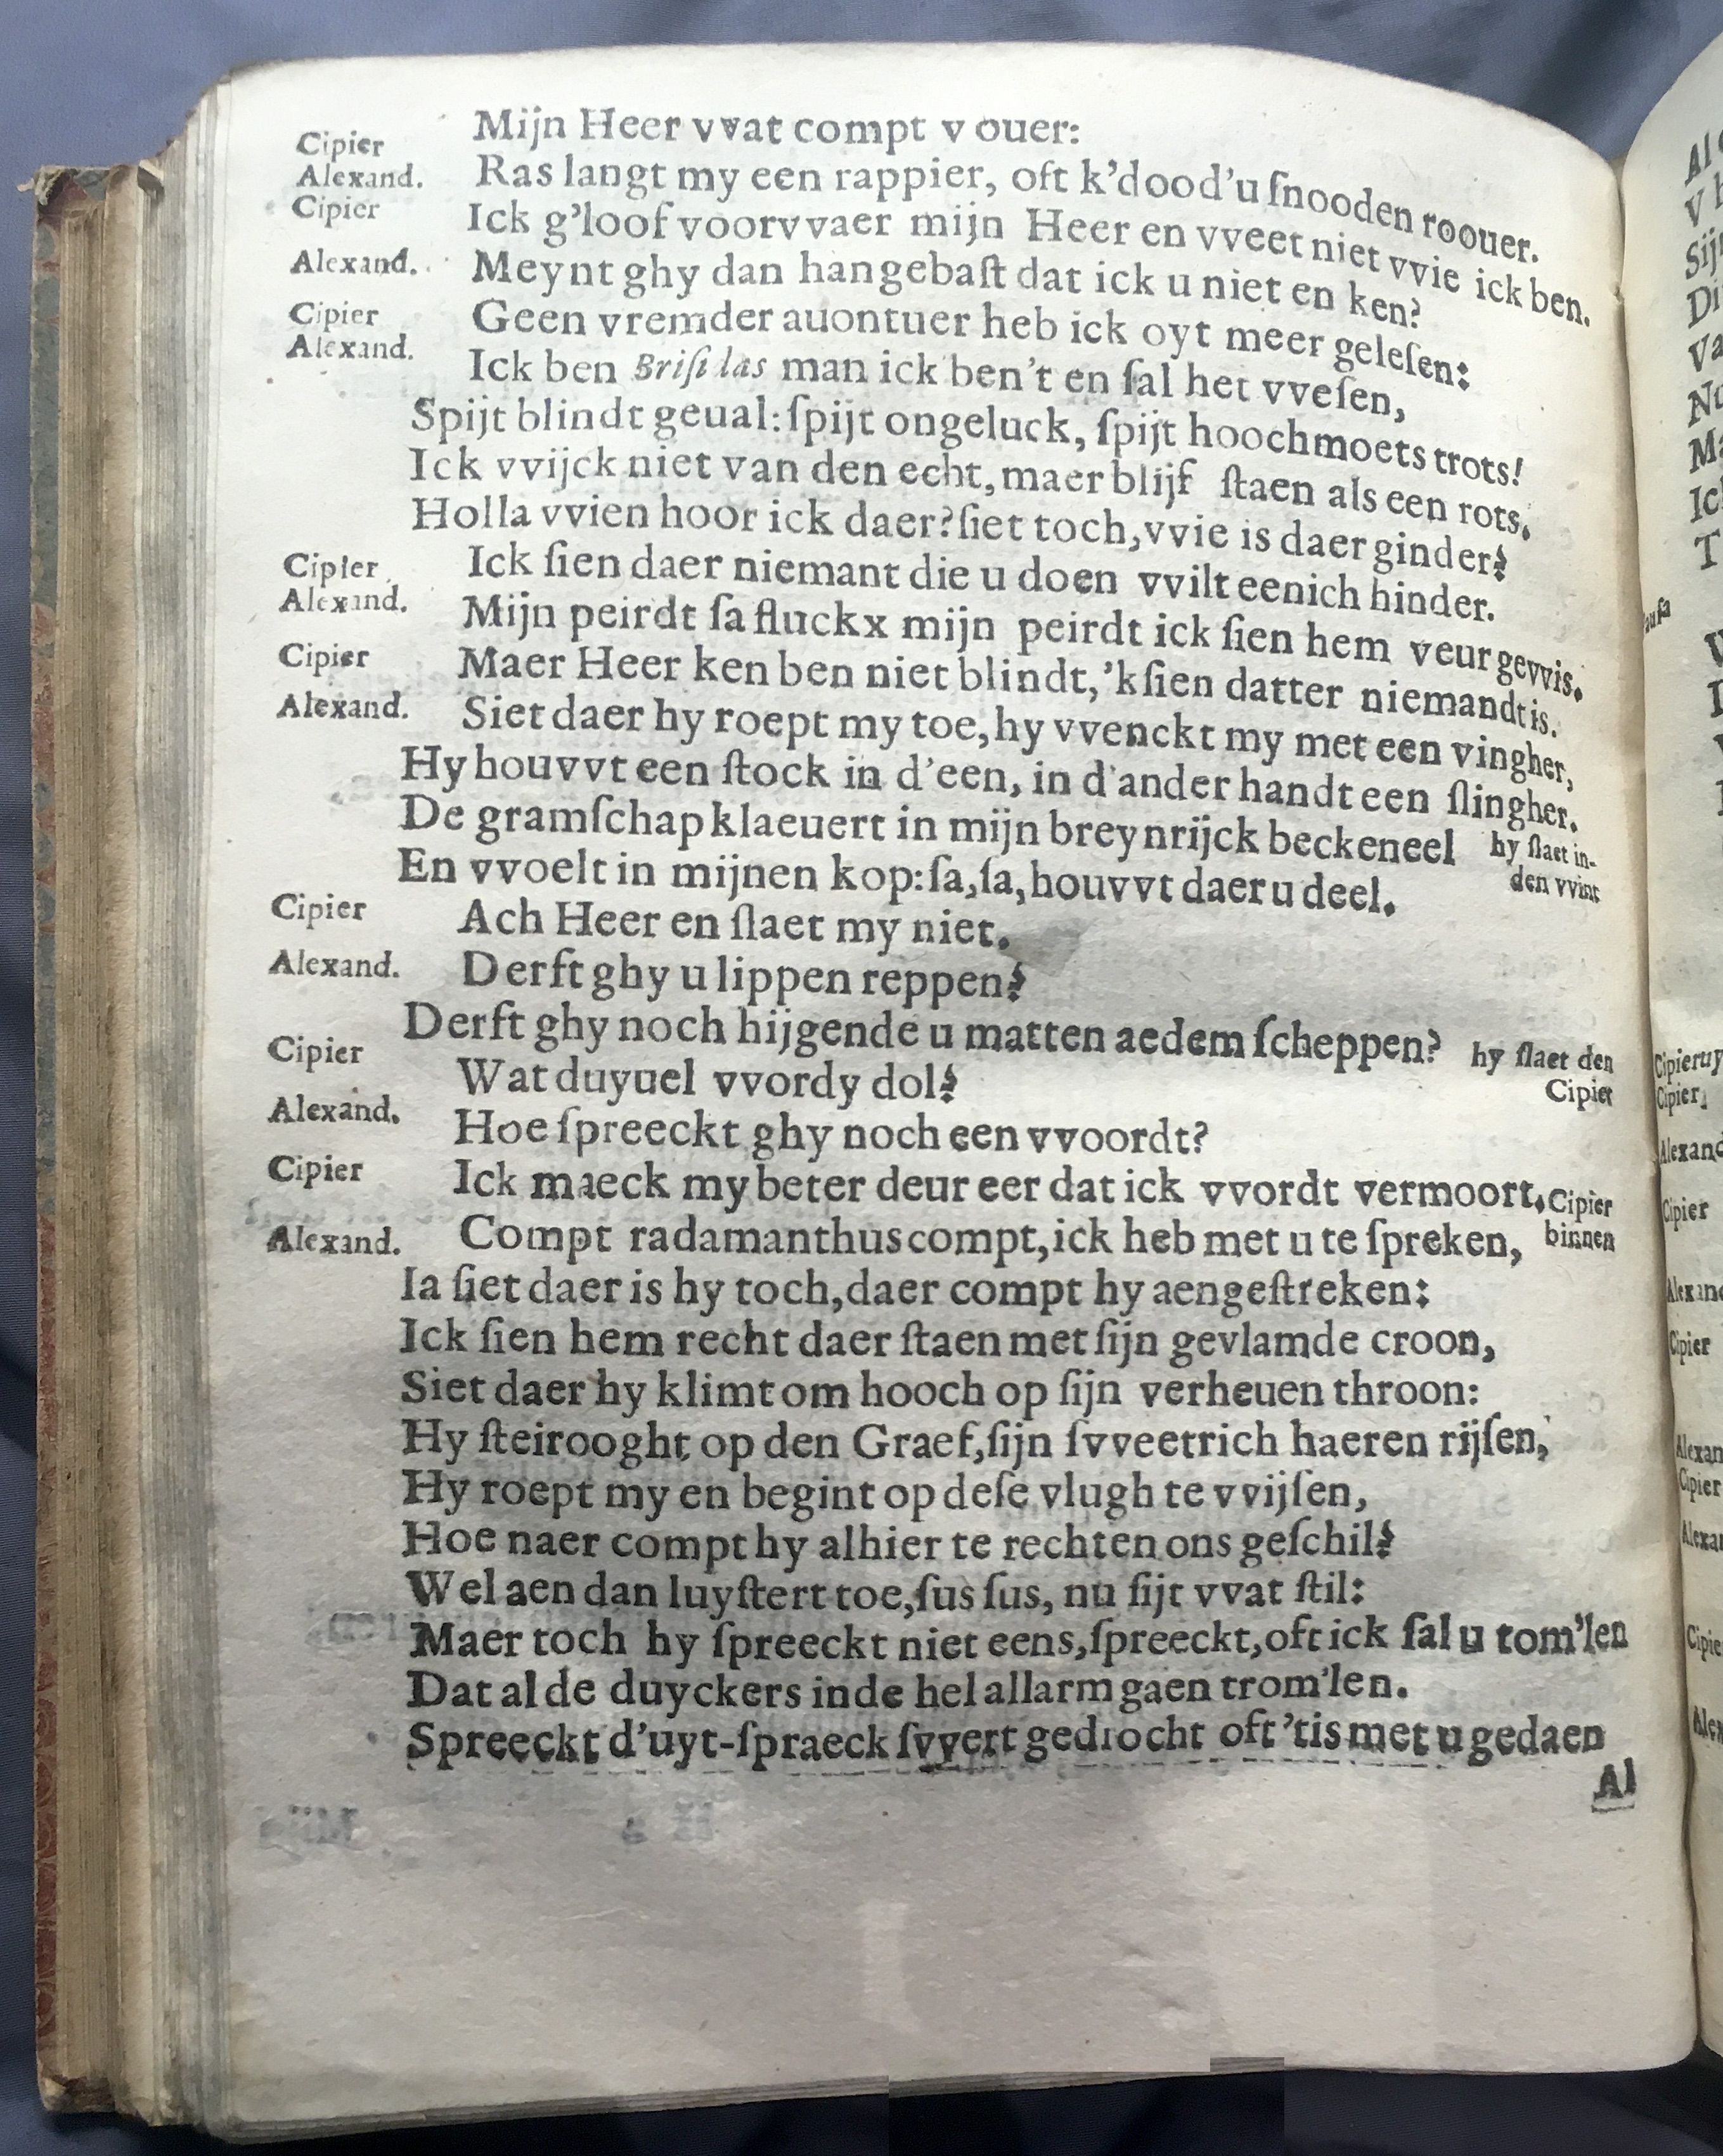 Cipier Mijn Heer vvat compt v ouer:
Alexand. Ras langt my een rappier, oft k'dood'u ſnooden roouer.
Cipier Ick g'loof voorvvaer mijn Heer en vveet niet vvie ick ben.
Alexand. Meynt ghy dan hangebaſt dat ick u niet en ken?
Cipier Geen vremder auontuer heb ick oyt meer geleſen:
Alexand. Ick ben Briſilas man ick ben't en ſal het vveſen,
Spijt blindt geual: ſpijt ongeluck, ſpijt hoochmoets trots!
Ick vvijck niet van den echt, maer blijf ſtaen als een rots.
Holla vvien hoor ick daer? ſiet toch, vvie is daer ginder?
Cipier Ick ſien daer niemant die u doen vvilt eenich hinder.
Alexand. Mijn peirdt ſa fluckx mijn peirdt ick ſien hem veur gevvis.
Cipier Maer Heer ken ben niet blindt, 'k ſien datter niemandt is.
Alexand. Siet daer hy roept my toe, hy vvenckt my met een vingher,
Hy houvvt een ſtock in d'een, in d'ander handt een ſlingher.
De gramſchap klaeuert in mijn breynrijck beckeneel hy ſlaet in-
En vvoelt in mijnen kop: ſa, ſa, houvvt daer u deel. den vvint
Cipier Ach Heer en ſlaet my niet.
Alexand. Derft ghy u lippen reppen?
Derft ghy noch hijgende u matten aedem ſcheppen? hy ſlaet den
Cipier Wat duyuel vvordy dol? Cipier
Alexand. Hoe ſpreeckt ghy noch een vvoordt?
Cipier Ick maeck my beter deur eer dat ick vvordt vermoort. Cipier
Alexand. Compt radamanthus compt, ick heb met u te ſpreken, binnen
Ia ſiet daer is hy toch, daer compt hy aengeſtreken:
Ick ſien hem recht daer ſtaen met ſijn gevlamde croon,
Siet daer hy klimt om hooch op ſijn verheuen throon:
Hy ſteirooght op den Graef, ſijn ſvveetrich haeren rijſen,
Hy roept my en begint op deſe vlugh te vvijſen,
Hoe naer compt hy alhier te rechten ons geſchil?
Wel aen dan luyſtert toe, ſus ſus, nu ſijt vvat ſtil:
Maer toch hy ſpreeckt niet eens, ſpreeckt, oft ick ſal u tom'len
Dat al de duyckers inde hel allarm gaen trom'len.
Spreeckt d'uyt-ſpraeck ſvvert gedrocht oft 'tis met u gedaen
Al